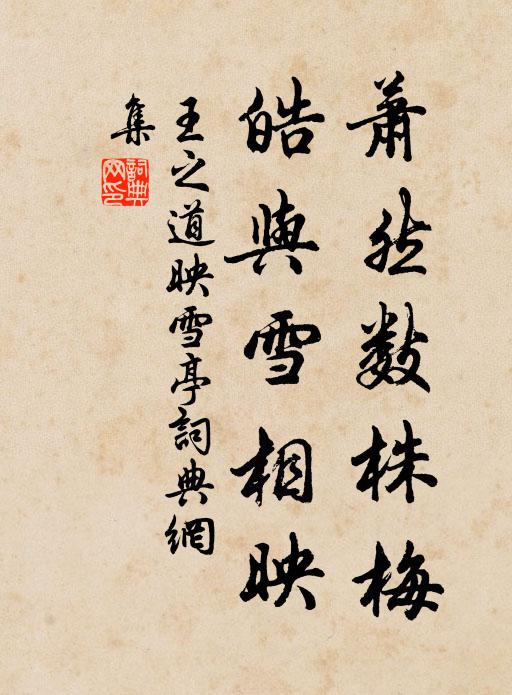 蕭然數株梅
皓與雪相映
王之道映雪亭詞典網
集
詞典網印